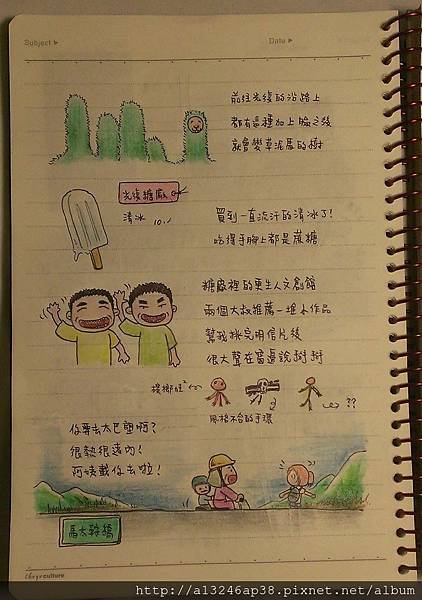 Subject ▶
Date ▶
前往光復的沿路上
都有這種加上臉之後
就會變草泥馬的樹
光復糖廠
清冰 10.-
買到一直流汗的清冰了!
吃得手腳上都是蔗糖
糖廠裡的更生人文創館
兩個大叔推薦一堆木作品
幫我挑完明信片後
很大聲在窗邊說掰掰
檳榔哇
??
風格不合的手環
你要去太巴塱啊?
很熱很遠內!
阿姨載你去啦!
馬太鞍橋
Chryaculture
http://a13246ap38.pixnet.net/album